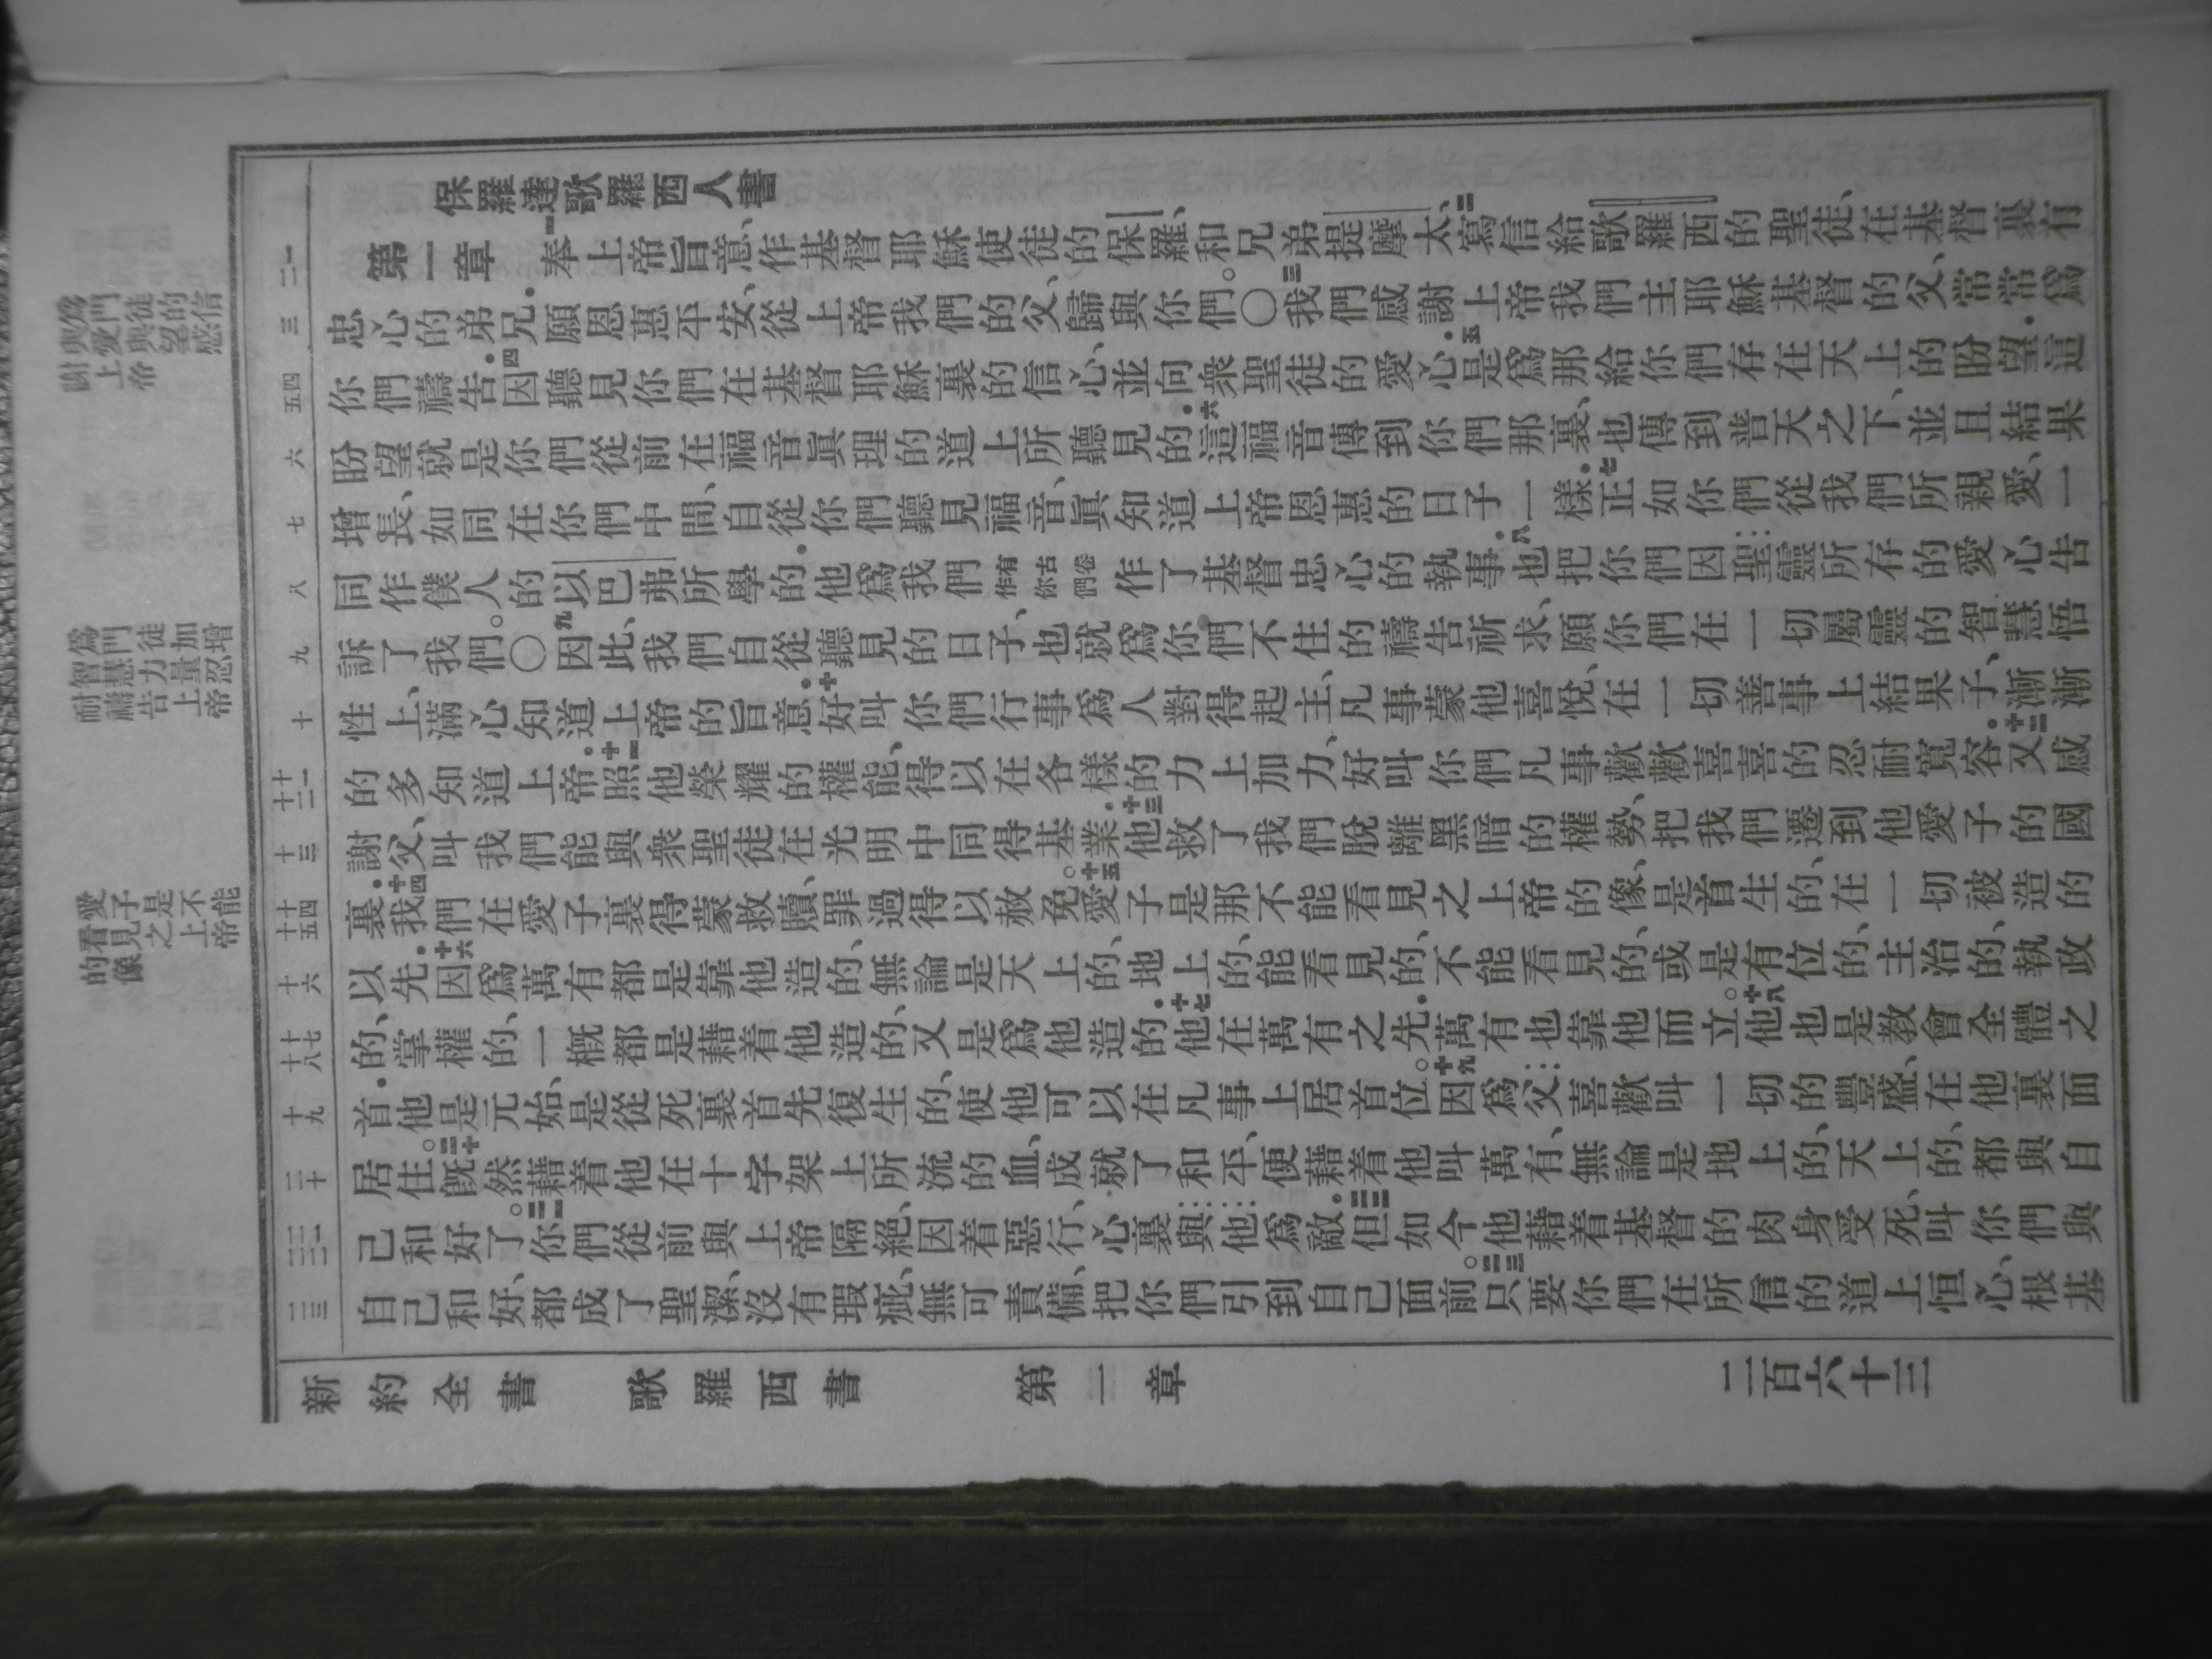 保羅達歌羅西人書
第一章 一奉上帝旨意、作基督耶穌使徒的保羅、和兄弟提摩太、二寫信給歌羅西的聖徒、在基督裏有
忠心的弟兄．願恩惠平安、從上帝我們的父、歸與你們。〇三我們感謝上帝我們主耶穌基督的父、常常爲
你們禱告．四因聽見你們在基督耶穌裏的信心、並向衆聖徒的愛心．五是爲那給你們存在天上的盼望．這
盼望就是你們從前在福音眞理的道上所聽見的．六這福音傳到你們那裏、也傳到普天之下、並且結果
增長、如同在你們中間、自從你們聽見福音、眞知道上帝恩惠的日子一樣．七正如你們從我們所親愛、一
同作僕人的以巴弗所學的．他爲我們有古卷作你們作了基督忠心的執事．八也把你們因聖靈所存的愛心告
訴了我們。〇九因此、我們自從聽見的日子、也就爲你們不住的禱告祈求、願你們在一切屬靈的智慧悟
性上、滿心知道上帝的旨意．十好叫你們行事爲人對得起主、凡事蒙他喜悅、在一切善事上結果子、漸漸
的多知道上帝。十一照他榮耀的權能、得以在各樣的力上加力、好叫你們凡事歡歡喜喜的忍耐寬容．十二又感
謝父、叫我們能與衆聖徒在光明中同得基業．十三他救了我們脫離黑暗的權勢、把我們遷到他愛子的國
裏．十四我們在愛子裏得蒙救贖、罪過得以赦免。十五愛子是那不能看見之上帝的像、是首生的、在一切被造的
以先．十六因爲萬有都是靠他造的、無論是天上的、地上的、能看見的、不能看見的、或是有位的、主治的、執政
的、掌權的、一概都是藉着他造的、又是爲他造的．十七他在萬有之先．萬有也靠他而立。十八他也是教會全體之
首．他是元始、是從死裏首先復生的、使他可以在凡事上居首位。十九因爲父喜歡叫一切的豐盛、在他裏面
居住。二十旣然藉着他在十字架上所流的血、成就了和平、便藉着他叫萬有、無論是地上的、天上的、都與自
己和好了。二一你們從前與上帝隔絕、因着惡行、心裏與他爲敵．二二但如今他藉着基督的肉身受死、叫你們與
自己和好、都成了聖潔、沒有瑕疵、無可責備、把你們引到自己面前。二三只要你們在所信的道上恒心、根基
新約全書 歌羅西書 第一章 二百六十三
一
二
三
四
五
六
七
八
九
十
十一
十二
十三
十四
十五
十六
十七
十八
十九
二十
二一
二二
二三
爲門徒的信
愛與望感
謝上帝
爲門徒加增
智慧力量忍
耐禱告上帝
愛子是不能
看見之上帝
的像